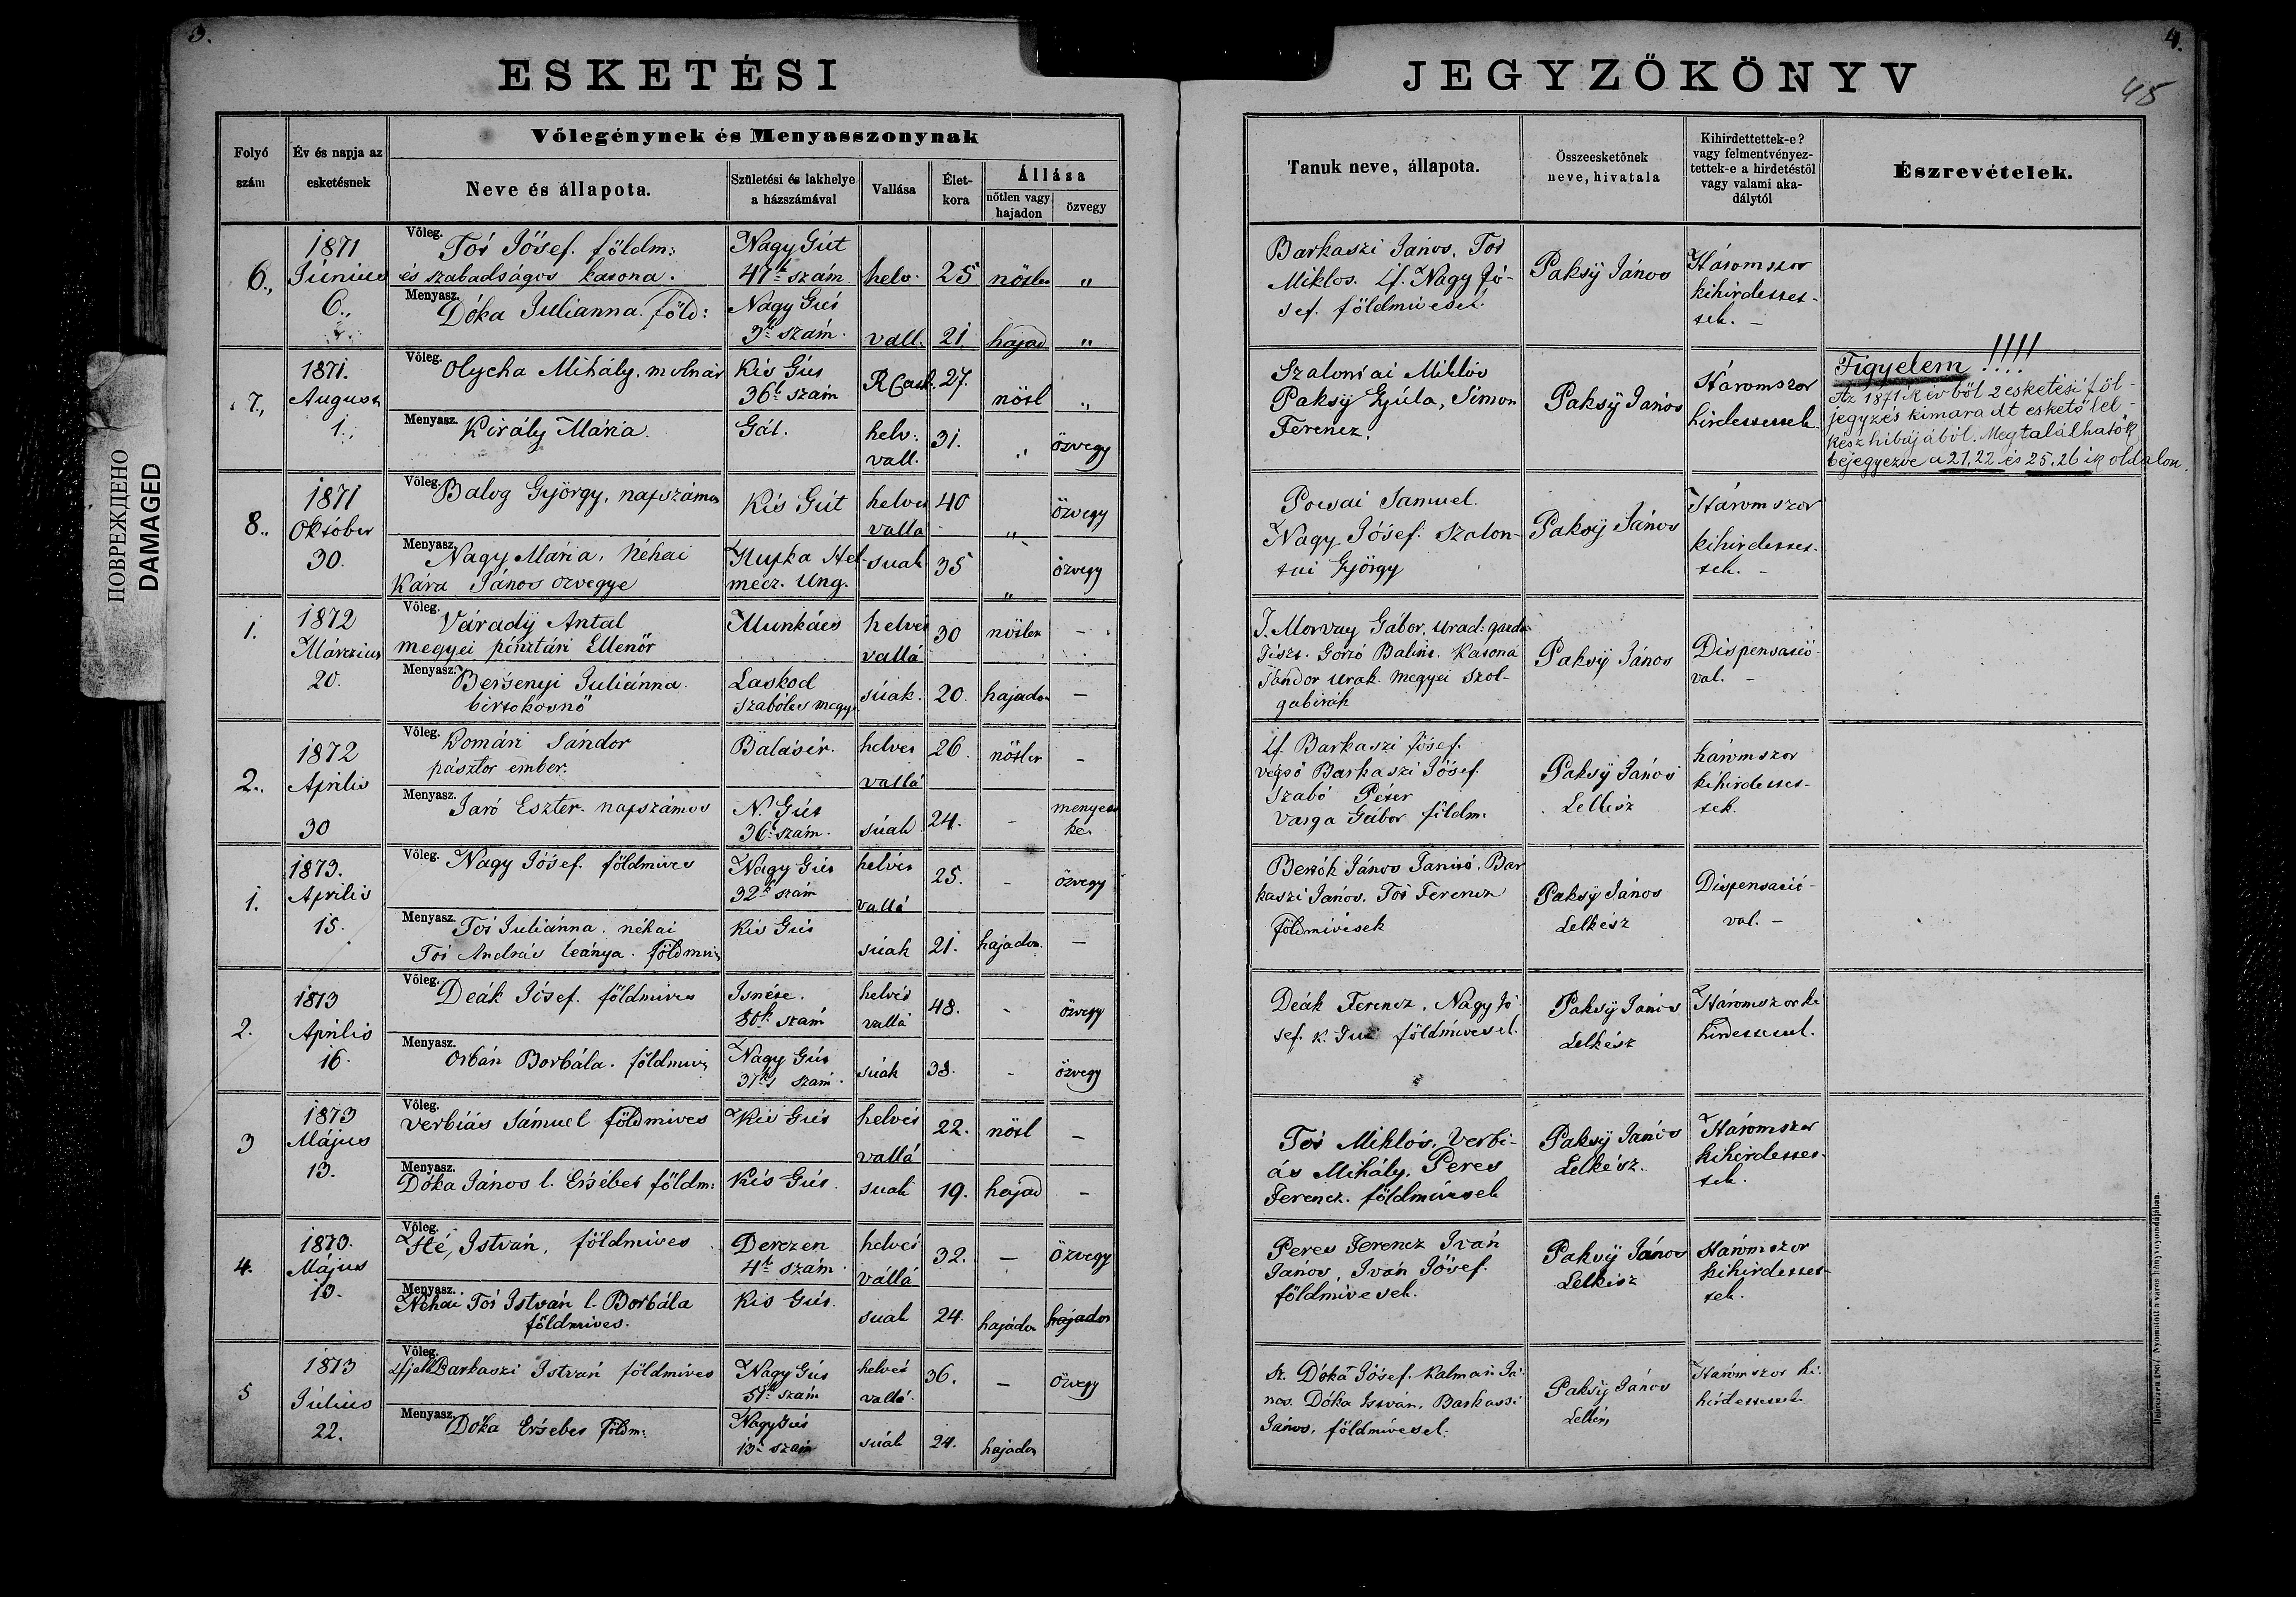 3.
ESKETÉSI
Folyó szám
Év és napja az esketésnek
Vőlegénynek és Menyasszonynak
Neve és állapota.
Születési és lakhelye a házszámával
Vallása
Élet-kora
Állása
nőtlen vagy hajadon
özvegy
6.,
1871
Június
6.,
Vőleg.
Tót Jósef. földm:
és szabadságos katona.
Nagy Gút
47k szám
helv.
25
nőtlen
„
Menyasz.
Dóka Julianna. föld:
Nagy Gút
3k szám.
vall.
21.
hajad
„
7.,
1871.
August
1.,
Vőleg.
Olycha Mihály. molnár
Kis Gút
36k szám
R Cath.
27.
nőtl
„
Menyasz.
Király Mária.
Gát.
helv:
vall.
31.
„
özvegy
8.,
1871
Október
30.
Vőleg.
Balog György, napszámos
Kis Gút
helvet
vallá
40
„
özvegy
Menyasz.
Nagy Mária, néhai
Kára János özvegye
mecz. Ung.
suak
35
„
özvegy
1.
1872
Márczius
20.
Vőleg.
Várady Antal
megyei pénztári Ellenőr
Munkács
helvet
vallá
30
nőtlen
-
Menyasz.
Bersenyi Juliánna.
birtokosnő
Laskod
Szabolcs megye
súak.
20.
hajadon
-
2.
1872
Április
30
Vőleg.
Komári Sándor
pásztor ember.
Balásér.
helvet
vallá
26.
nőtlen
-
Menyasz.
Jaró Eszter. napszámos
N. Gút
36k szám.
súak
24.
-
menyecs
ke.
1.
1873.
Április
15.
Vőleg.
Nagy Jósef. földmives
Nagy Gút
32k szám
helvét
vallá
25.
-
özvegy
Menyasz.
Tót Juliánna. néhai
Tót András leánya. földmiv
Kis Gút
súak
21.
hajadon.
-
2.
1873
Április
16.
Vőleg.
Deák Jósef. földmives
Isnéte.
80k szám
helvét
vallá
48.
-
özvegy
Menyasz.
Orbán Borbála. földmiv
Nagy Gút
37k szám.
súak
38.
-
özvegy
3
1873
Május
13.
Vőleg.
Verbiás Sámuel földmives
Kis Gút
helvét
vallá
22.
nőtl
-
Menyasz.
Dóka János l. Ersébet földm:
Kis Gút.
suak
19.
hajad
-
4.
1873.
Május
13.
Vőleg.
Hé, István, földmives
Derczen
4k szám.
helvét
vállá
32.
-
Özvegy
Menyasz.
Néhai Tót István l. Borbála
földmives.
Kis Gút.
suak
24.
hajadon
hajadon
5
1873
Július
22.
Vőleg.
ifjabb Barkaszi István földmives
Nagy Gút
51k szám
helvét
vallá.
36.
-
Özvegy
Menyasz.
Dóka Ersébet földm:
Nagy Gút
13k szám
súak
24.
hajadon
ПОВРЕЖДЕНО
DAMAGED
4.
45
JEGYZŐKÖNYV
Tanuk neve, állapota.
Összeesketőnek neve, hivatala
Kihirdettettek-e?
vagy felmentvényez-
tettek-e a hirdetéstől
vagy valami aka-
dálytól
Észrevételek.
Barkaszi János, Tót
Miklos. if. Nagy Jó-
sef. földmivesek.
Paksÿ János
Háromszor
kihirdettet-
tek. -
Szalontai Miklós
Paksÿ Gyúla, Simon
Ferencz.
Paksÿ János
Háromszor
hirdettettek.
Figyelem !!!!
Az 1871ik évből 2 esketési föl-
jegyzés kimaradt eskető lel-
kész hibájából. Megtalálhatók
bejegyezve a 21, 22 és 25, 26 ik oldalon.
Pocsai Samuel.
Nagy Jósef. Szalon-
tai György
Paksÿ János
Háromszor
kihirdettet-
tek. -
J. Morvay Gábor, Urad: gazda
Tiszt. Gorzó Balint. Katona
Sándor urak. megyei szol-
gabirák
Paksÿ János
Dispensatió-
val. -
if. Barkaszi Jósef.
végső Barkaszi Jósef.
Szabó Péter
Varga Gábor földm.
Paksÿ János
Lelkész
háromszor
kihirdettet-
tek.
Bertók János Tanító. Bar
kaszi János. Tót Ferencz
földmivesek
Paksÿ János
Lelkész
Dispensatió-
val. -
Deák Ferencz, Nagy Jó
sef. K. Gut földmivesek.
Paksÿ János
Lelkész
Háromszor ki
hirdettettek.
Tót Miklós, Verbi-
ás Mihály, Peres
Ferencz. földmivesek
Paksÿ János
Lelkész.
Háromszor
kihirdettet-
tek.
Peres Ferencz Iván
János, Iván Jósef.
földmivesek.
Paksÿ János
Lelkész
Háromszor
kihirdettet-
tek.
Sz. Dóka Jósef. Kalmán Já-
nos. Dóka István, Barkaszi
János, földmivesek.
Paksÿ János
Lelkész
Háromszor ki-
hirdettettek